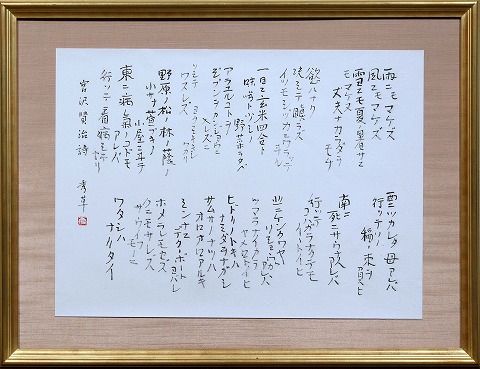 雨ニモマケズ
風ニモマケズ
雪ニモ夏ノ暑サニモ
マケズ
丈夫ナカラダヲ
モチ
慾ハナク
決シテ瞋ラズ
イツモシヅカニワラッテ
ヰル
一日ニ玄米四合ト
味噌ト少シノ
野菜ヲタベ
アラユルコトヲ
ジブンヲカンジョウニ
入レズニ
ヨクミキキシ
ワカリ
ソシテ
ワスレズ
野原ノ松ノ林ノ蔭ノ
小サナ萱ブキノ
小屋ニヰテ
東ニ病気ノコドモ
アレバ
行ッテ看病シテヤリ
西ニツカレタ母アレバ
行ッテソノ
稲ノ束ヲ
負ヒ
南ニ
死ニサウナ人アレバ
行ッテ
コハガラナクテモ
イヽトイヒ
北ニケンクヮヤ
ソショウガアレバ
ツマラナイカラ
ヤメロトイヒ
ヒドリノトキハ
ナミダヲナガシ
サムサノナツハ
オロオロアルキ
ミンナニ
デクノボートヨバレ
ホメラレモセズ
クニモサレズ
サウイフモノニ
ワタシハ
ナリタイ
宮沢賢治詩